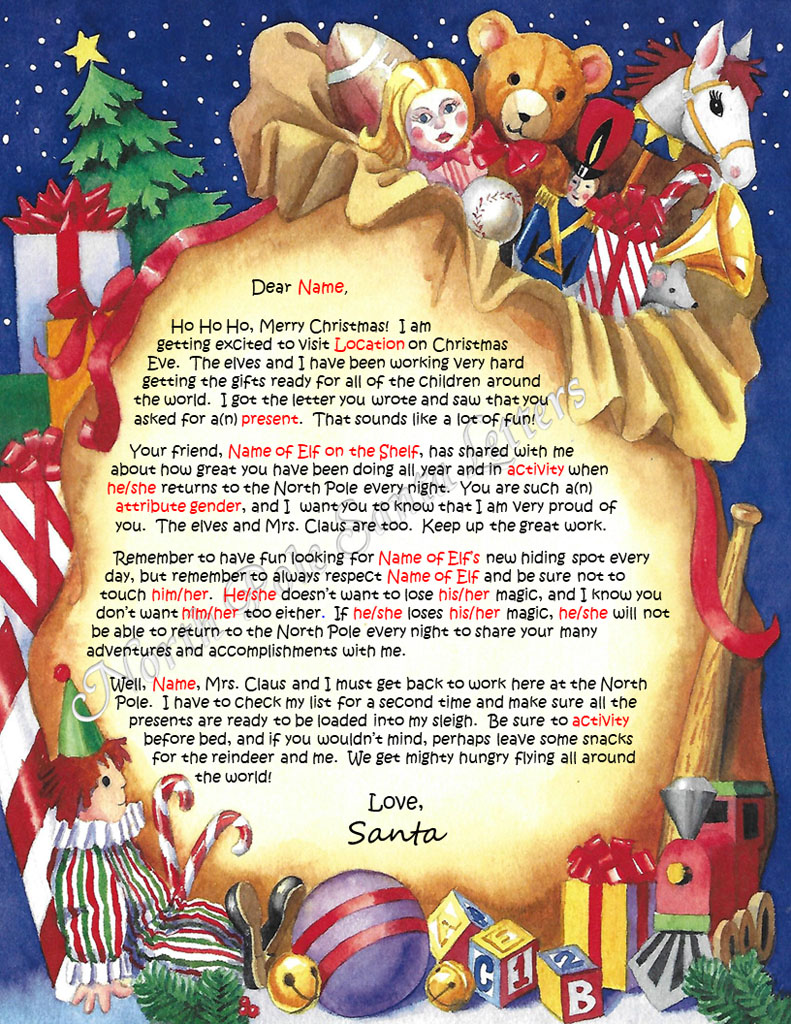 Dear Name,
Ho Ho Ho, Merry Christmas!  I am
getting excited to visit Location on Christmas
Eve.  The elves and I have been working very hard
getting the gifts ready for all of the children around
the world.  I got the letter you wrote and saw that you
asked for a(n) present.  That sounds like a lot of fun!
Your friend, Name of Elf on the Shelf, has shared with me
about how great you have been doing all year and in activity when
he/she returns to the North Pole every night.  You are such a(n)
attribute gender, and I  want you to know that I am very proud of
you.  The elves and Mrs. Claus are too.  Keep up the great work.
Remember to have fun looking for Name of Elf's new hiding spot every
day, but remember to always respect Name of Elf and be sure not to
touch him/her.  He/she doesn't want to lose his/her magic, and I know you
don't want him/her too either.  If he/she loses his/her magic, he/she will not
be able to return to the North Pole every night to share your many
adventures and accomplishments with me.
Well, Name, Mrs. Claus and I must get back to work here at the North
Pole.  I have to check my list for a second time and make sure all the
presents are ready to be loaded into my sleigh.  Be sure to activity
before bed, and if you wouldn't mind, perhaps leave some snacks
for the reindeer and me.  We get mighty hungry flying all around
the world!
Love,
Santa
North Pole Santa Letters
A C E
C 1
2 B